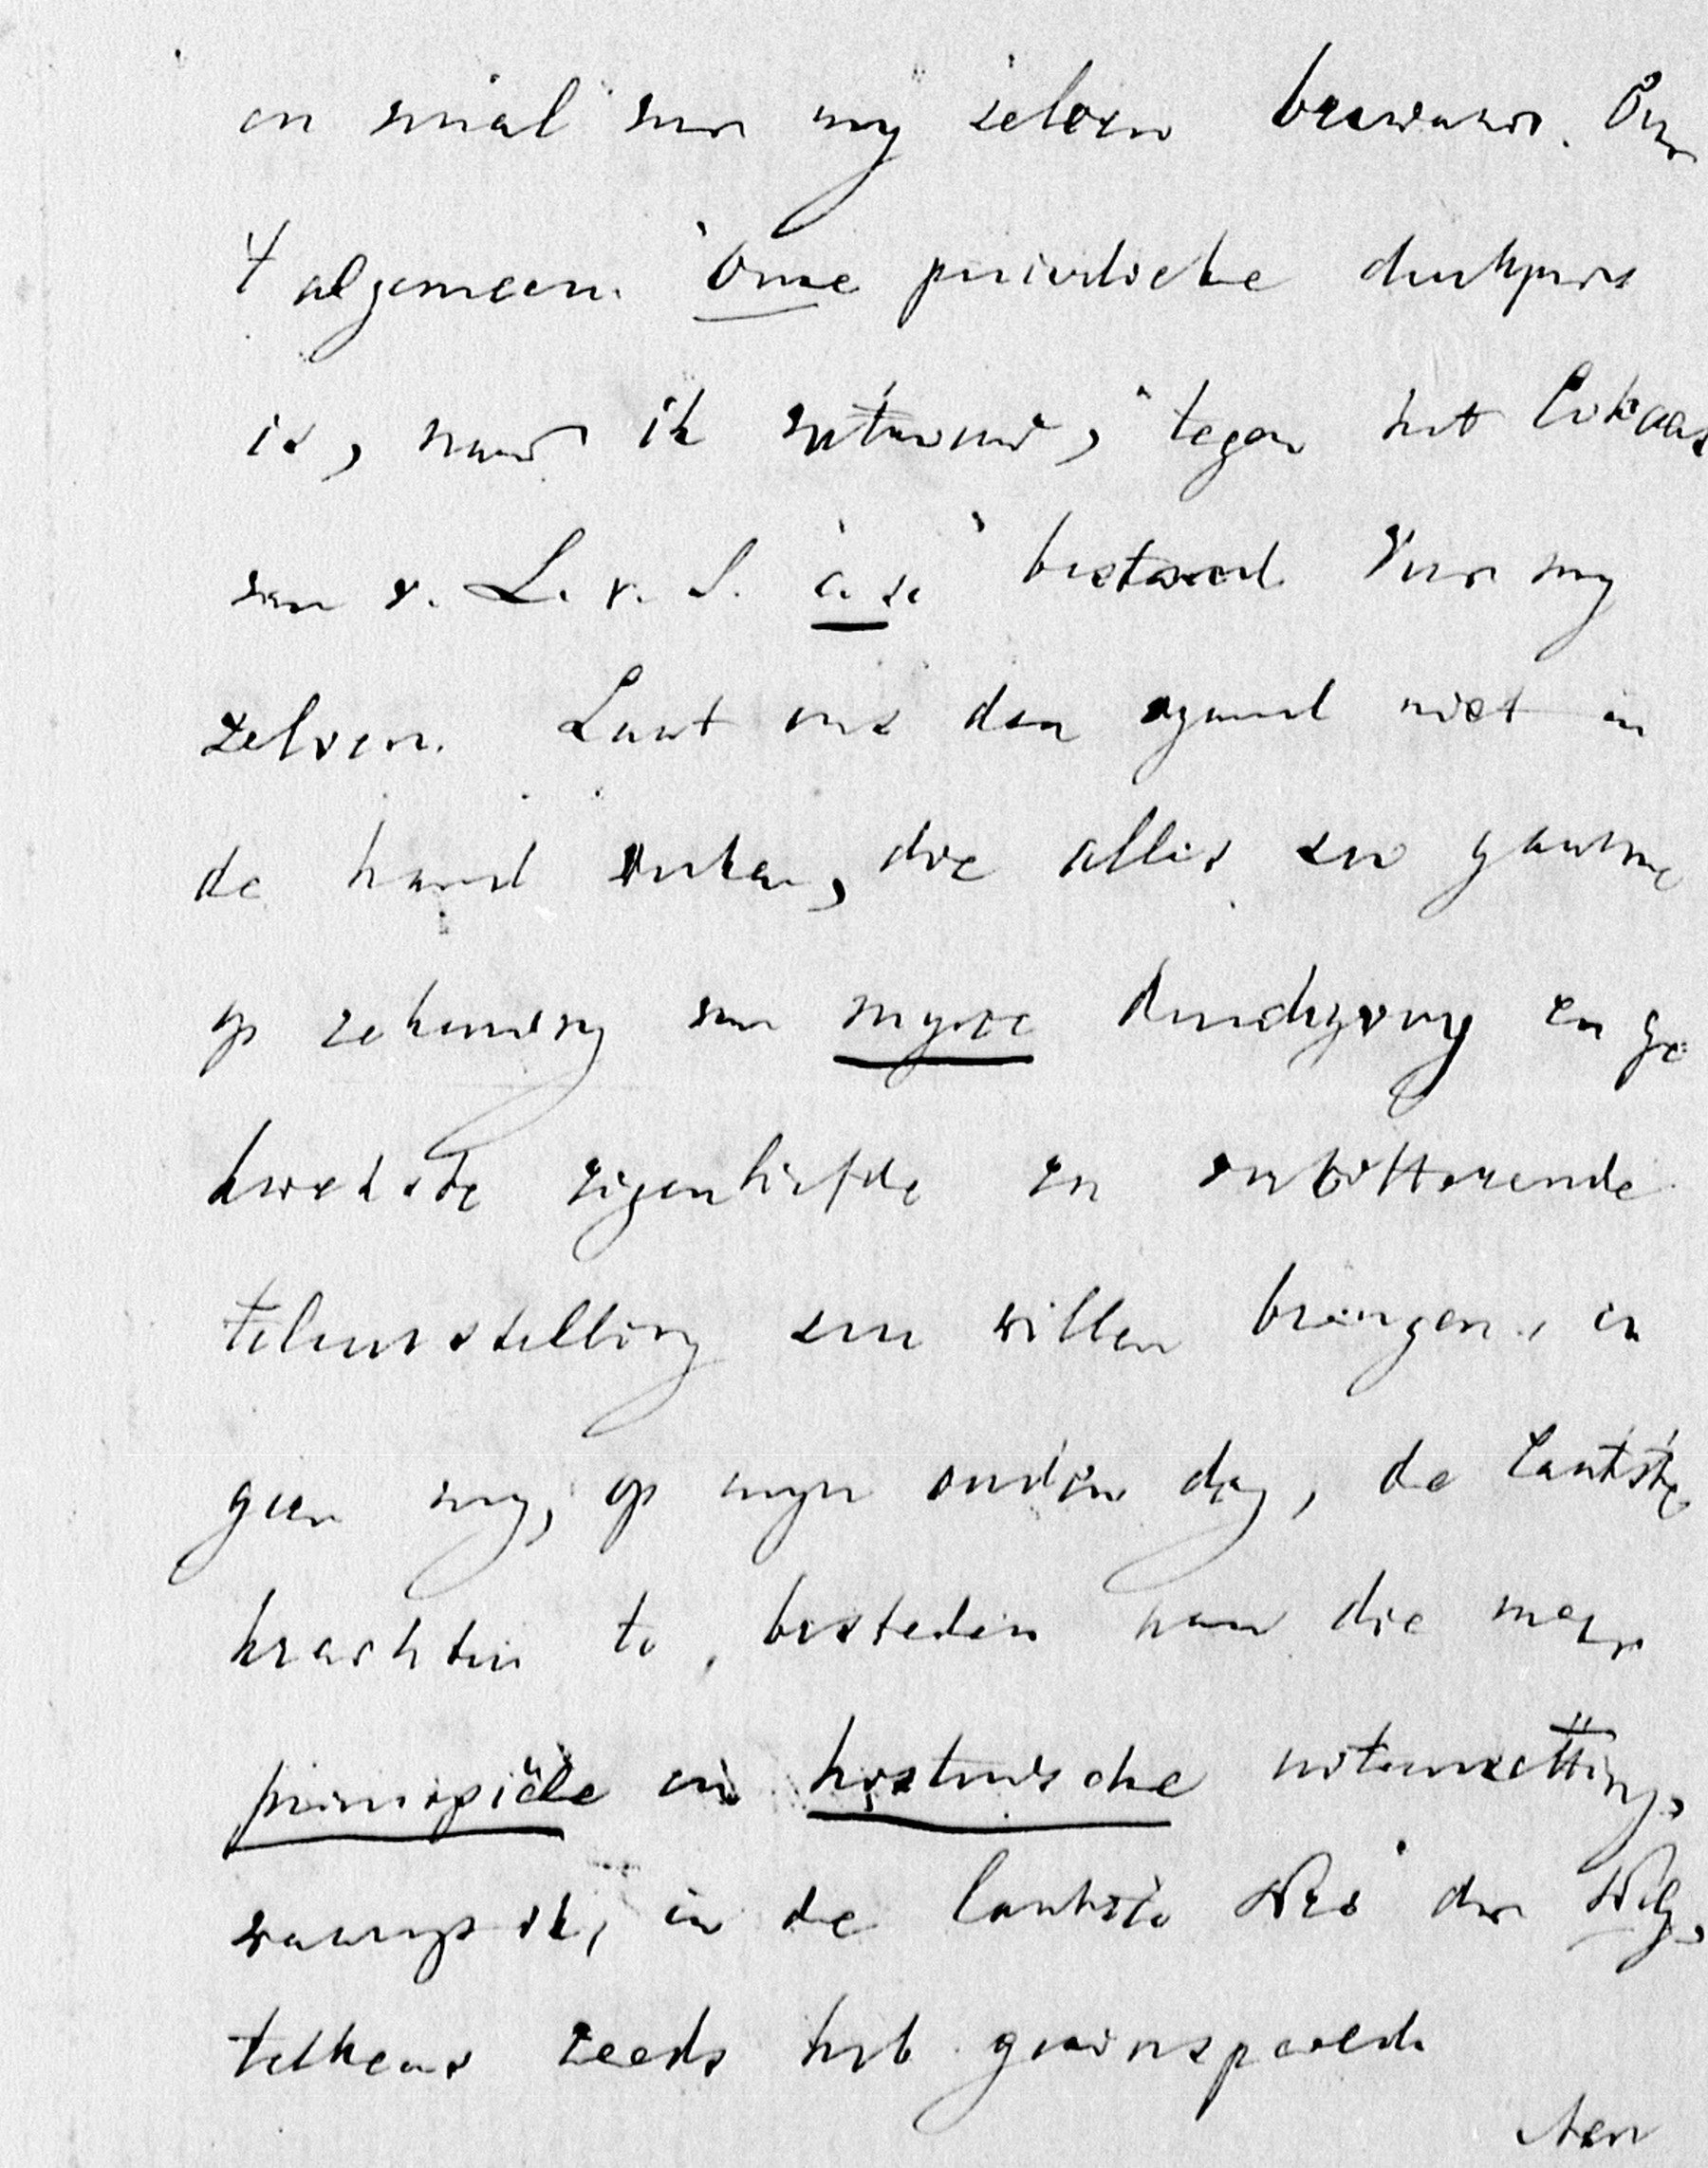 en vooral voor my zelven bewaren. Over
't algemeen. Onze periodieke drukpers
is, naar ik vertrouw, tegen het lokaas
van v. L. v. S. c. s. bestand. Voor my
zelven. Laat ons den vyand niet in
de hand werken, die alles zou gaarne
op rekening van myne kwetste
eigenliefde en verbitterende
teleurstelling zou willen brengen, en
gun my, op myn ouden dag, de laatste
krachten te besteden aan die meer
principiële en historische uiteenzetting,
waarop ik, in de laatste der
telkens reeds heb gezinspeeld.
Aan